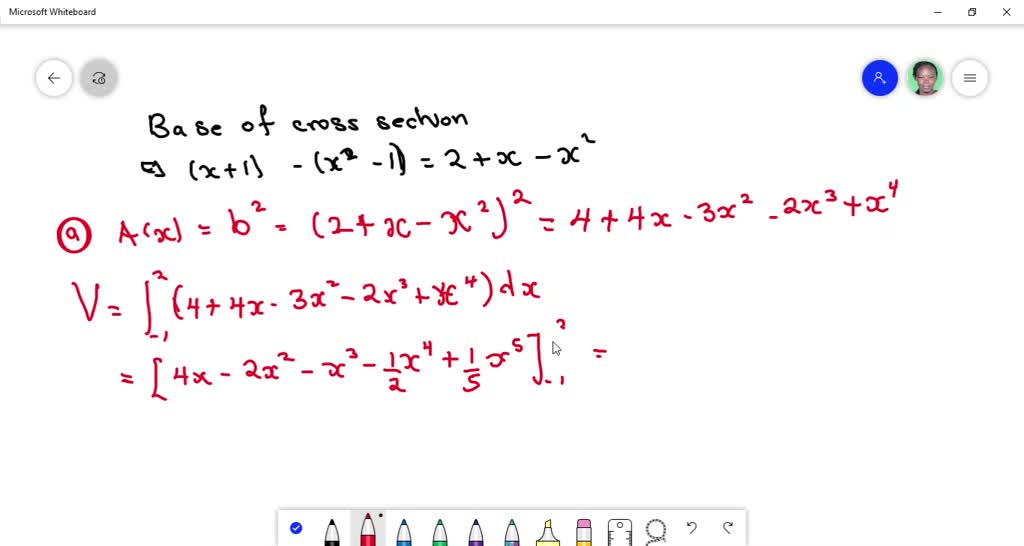 Microsoft Whiteboard
Base of cross section
⇒ (x+1) - (x² - 1) = 2 + x - x²
ⓐ A(x) = b² = (2 + x - x²)² = 4 + 4x - 3x² - 2x³ + x⁴
V = ∫₋₁² (4 + 4x - 3x² - 2x³ + x⁴) dx
= [4x - 2x² - x³ - 1/2 x⁴ + 1/5 x⁵]₋₁² =